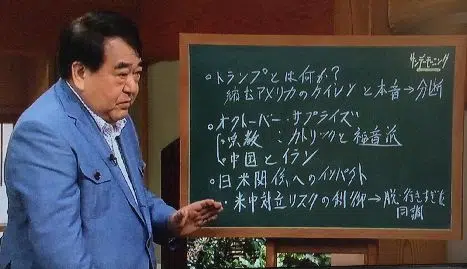 サンデーモーニング
○トランプとは何か?
縮むアメリカのカイライと本音→分断
○オクトーバー・サプライズ
宗教:カトリックと福音派
中国とイラン
○日米関係へのインパクト
・米中対立リスクの制御→脱・行きすぎた
同調